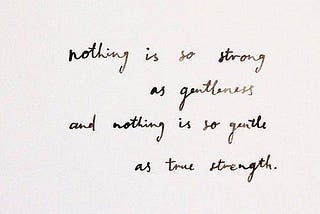 nothing is so strong
as gentleness
and nothing is so gentle
as true strength.